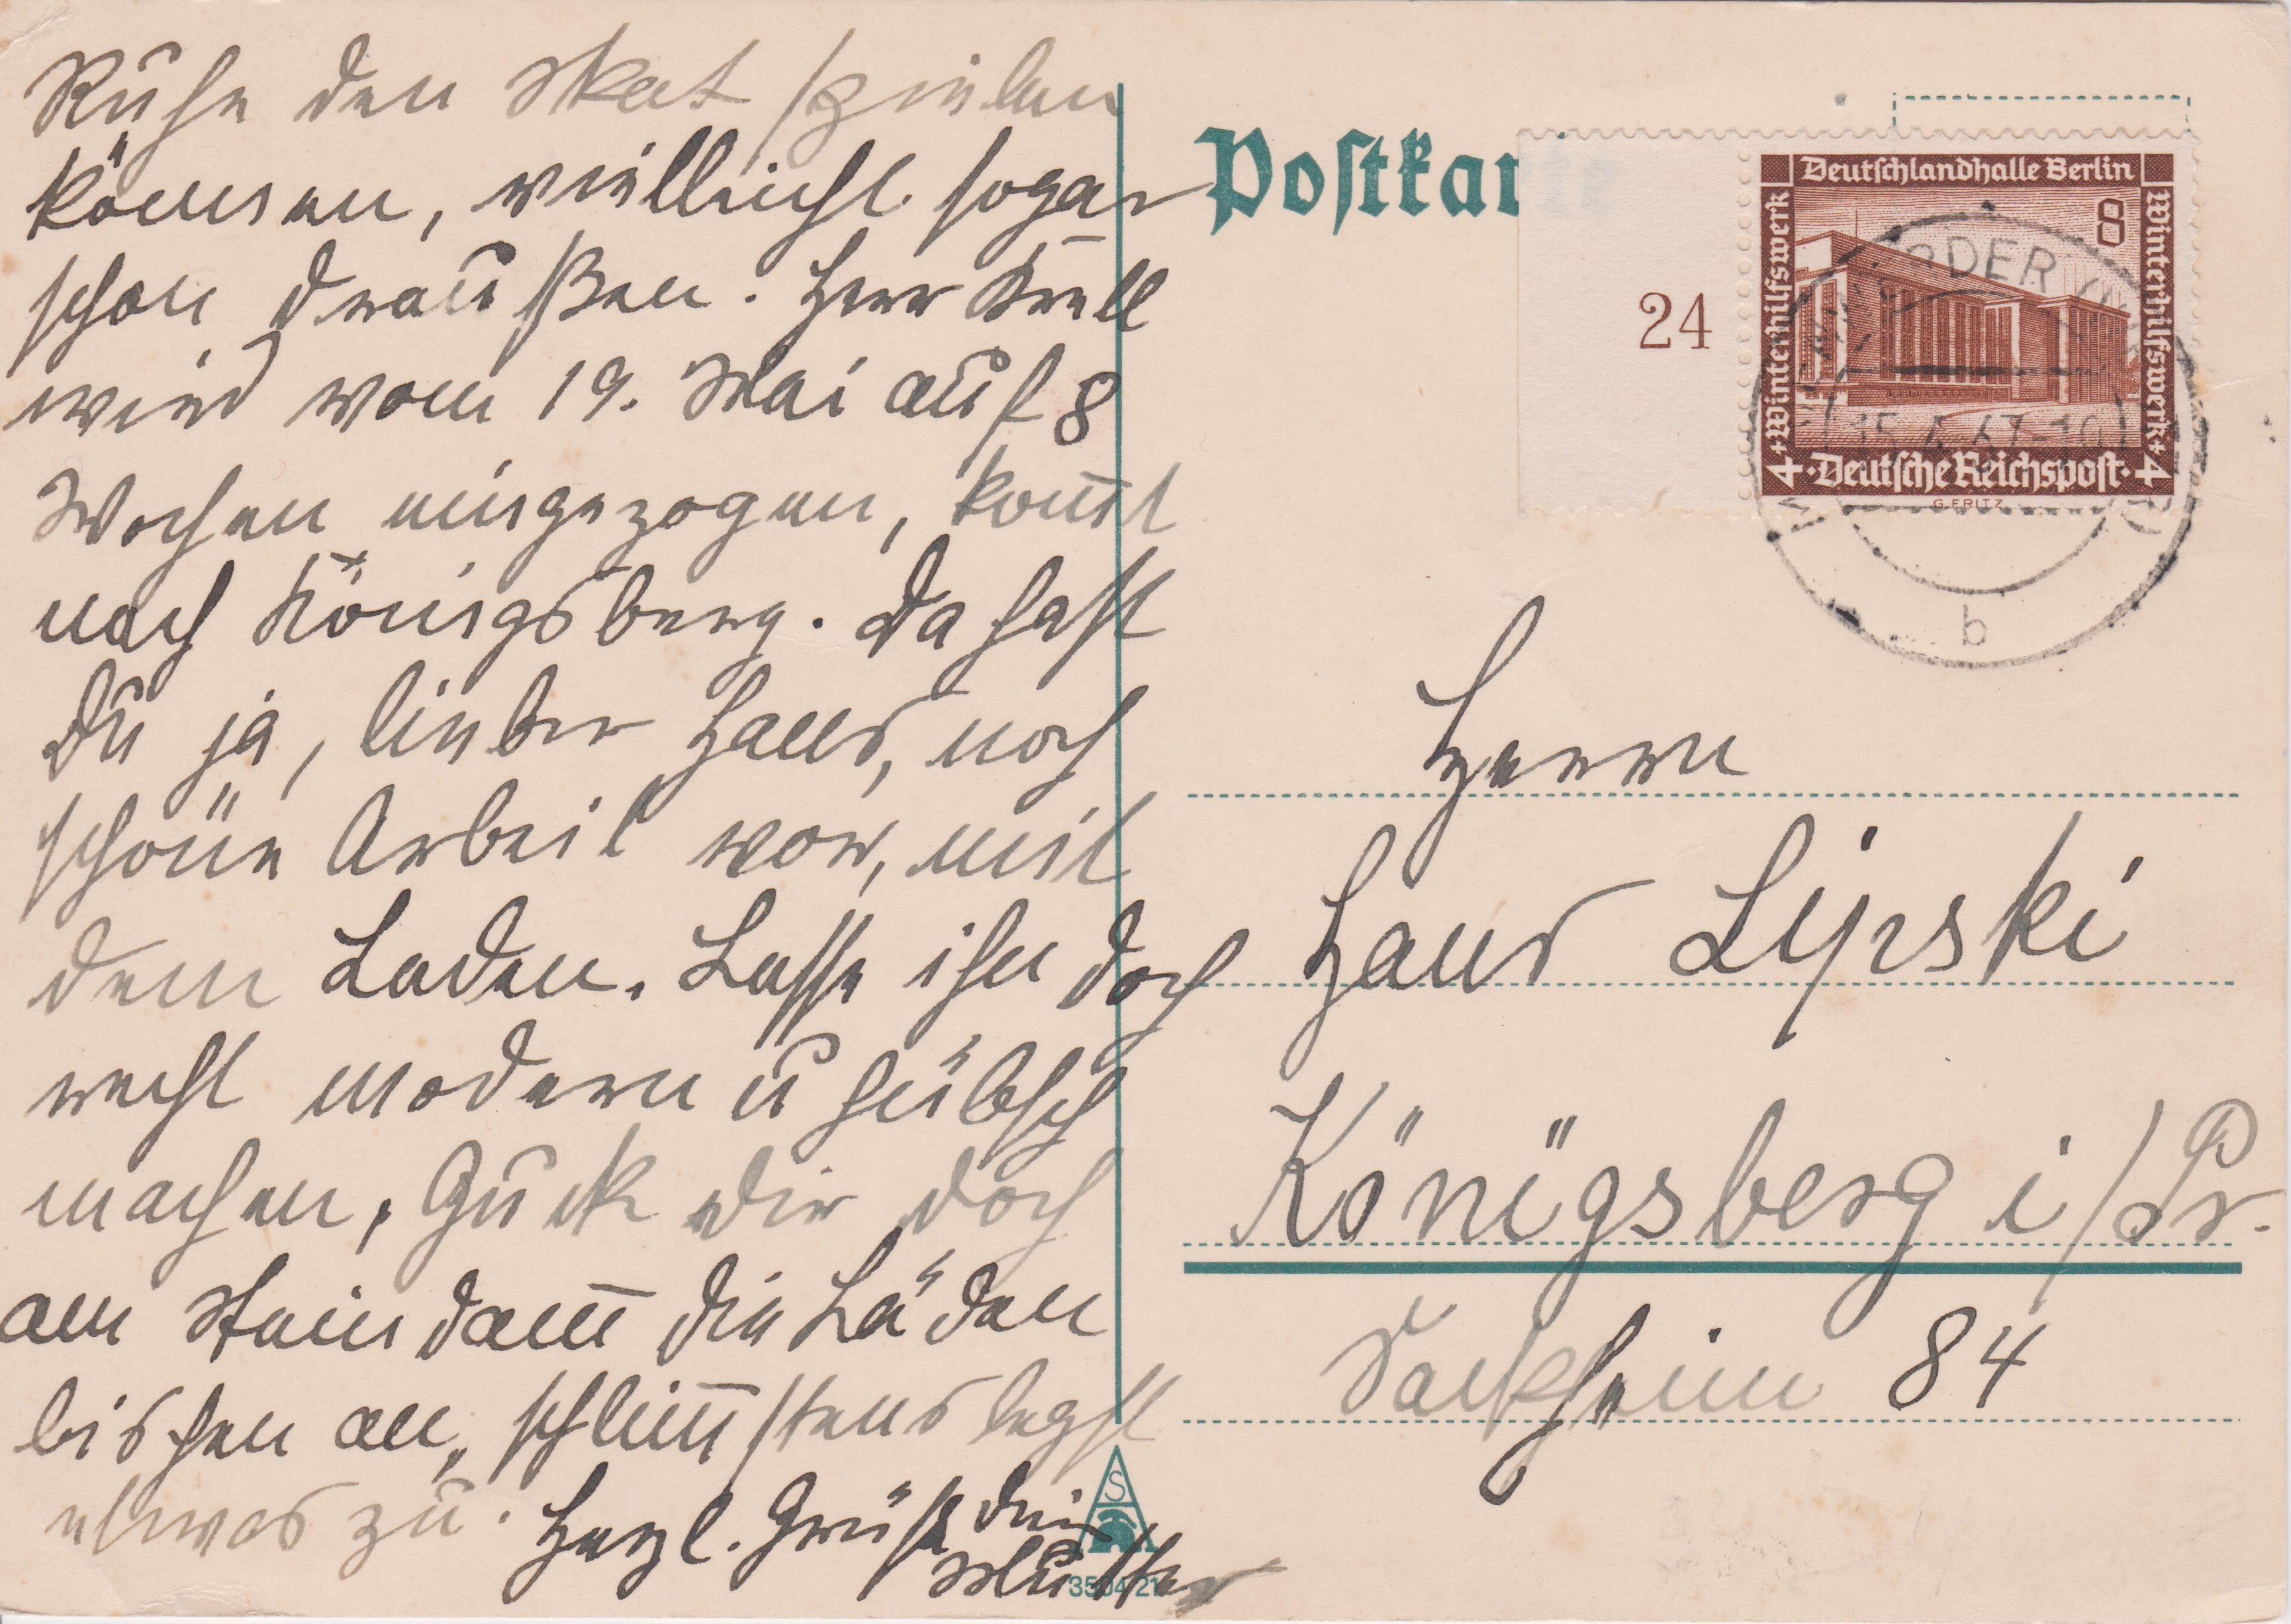 Ruhe den Skat spielen
können, vielleicht sogar
schon draußen. Herr Krell
wird vom 19. Mai auf 8
Wochen eingezogen, kom̅t
nach Königsberg. Da hast
Du ja, lieber Hans, noch
schöne Arbeit vor, mit
dem Laden. Lasse ihn doch
recht modern u hübsch
machen. Guck Dir doch
am Steindam̅ die Läden
bischen an, schlim̅stens legst
etwas zu. Herzl. Grüße Deine
Mutter
Postkarte
24
Deutschlandhalle Berlin
8
Winterhilfswerk
Winterhilfswerk
4 Deutsche Reichspost 4
G. FRITZ
b
Herrn
Hans Lipski
Königsberg i/Pr.
Sackheim 84
S
3504/21